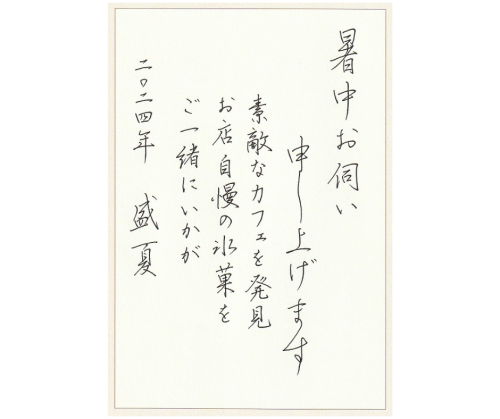 暑中お伺い
申し上げます
素敵なカフェを発見
お店自慢の氷菓を
ご一緒にいかが
二〇二四年 盛夏